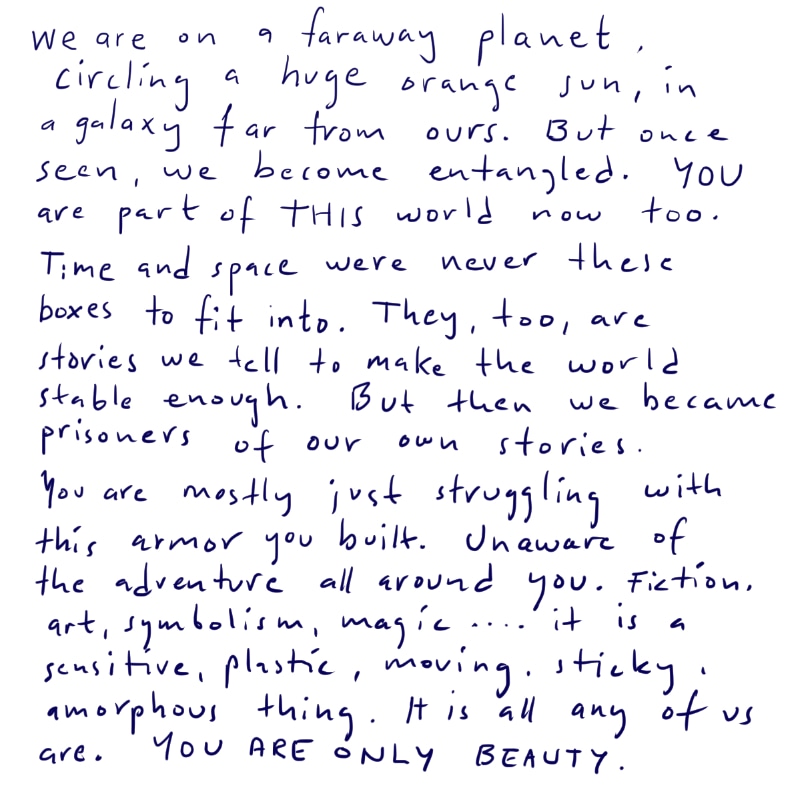 We are on a faraway planet,
circling a huge orange sun, in
a galaxy far from ours. But once
seen, we become entangled. YOU
are part of THIS world now too.
Time and space were never these
boxes to fit into. They, too, are
stories we tell to make the world
stable enough. But then we became
prisoners of our own stories.
You are mostly just struggling with
this armor you built. Unaware of
the adventure all around you. Fiction,
art, symbolism, magic .... it is a
sensitive, plastic, moving, sticky,
amorphous thing. It is all any of us
are. YOU ARE ONLY BEAUTY.